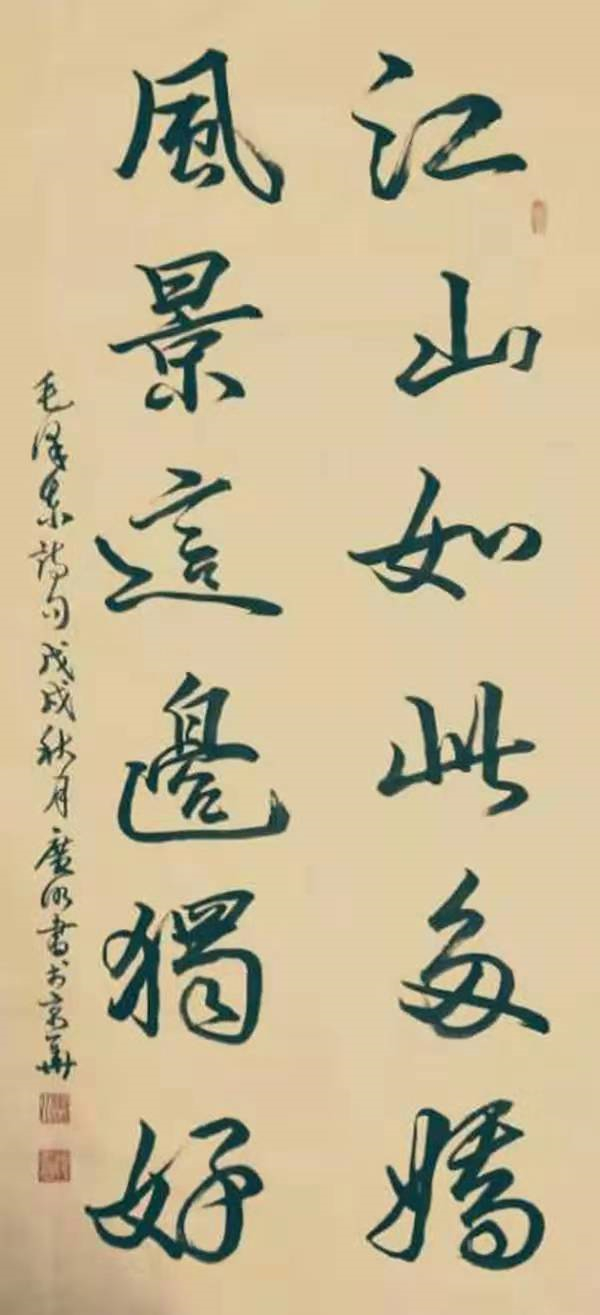 江山如此多嬌
風景這邊獨好
毛泽东詩句戊戌秋月廣明書於京華